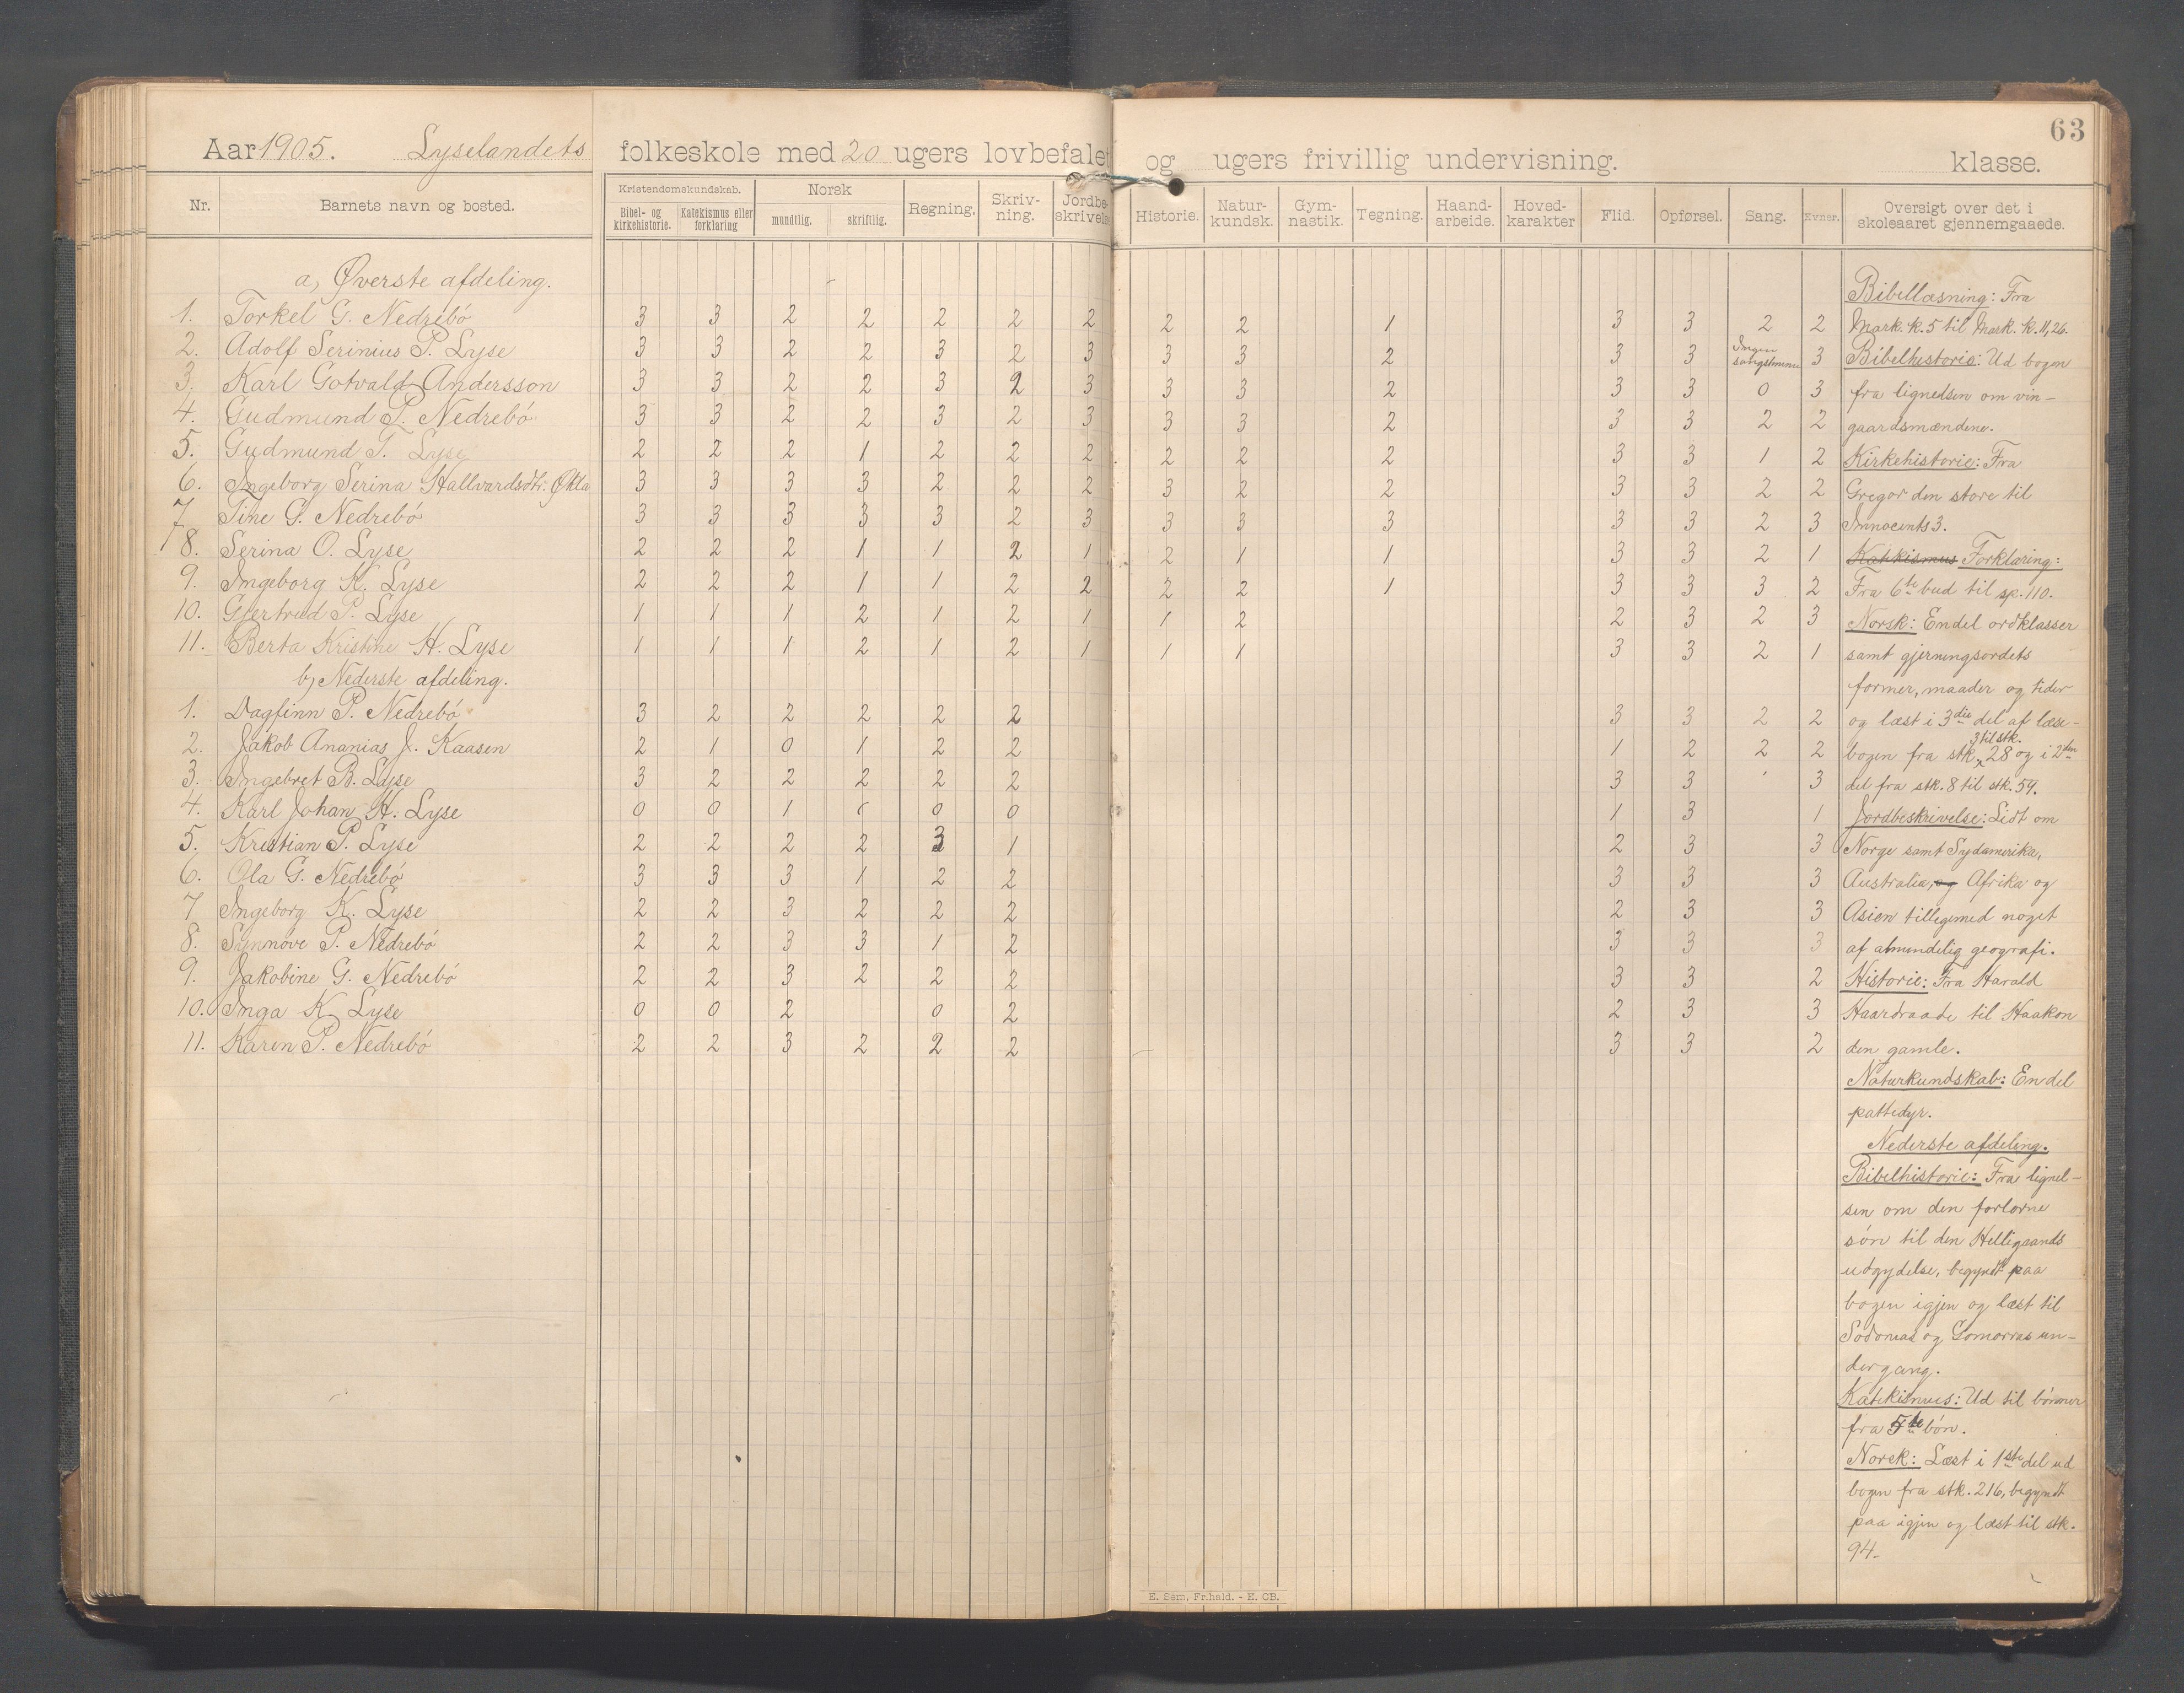 63
Aar 1905. Lyselandets folkeskole med 20 ugers lovbefalet og ugers frivillig undervisning. klasse.
Nr. Barnets navn og bosted. Kristendomskundskab. Norsk Regning. Skriv-ning. Jordbe-skrivelse Historie. Natur-kundsk. Gym-nastik. Tegning. Haand-arbeide. Hoved-karakter Flid. Opførsel. Sang. Evner. Oversigt over det i skoleaaret gjennemgaaede.
Bibel- og kirkehistorie. Katekismus eller forklaring mundtlig. skriftlig.
a, Øverste afdeling.
1. Torkel G. Nedrebó 3 3 2 2 2 2 2 2 2 1 3 3 2 2
2. Adolf Serinius P. Lyse 3 3 2 2 3 2 3 3 3 2 3 3 Ingen sangstemme 3
3. Karl Gotvald Andersson 3 3 2 2 3 2 3 3 3 2 3 3 0 3
4. Gudmund P. Nedrebó 3 3 2 2 3 2 3 3 3 2 3 3 2 2
5. Gudmund T. Lyse 2 2 2 1 2 2 2 2 2 2 3 3 1 2
6. Ingeborg Serina Hallvardsdtr. Økla 3 3 3 3 2 2 2 3 2 2 3 3 2 2
7 Tine G. Nedrebó 3 3 3 3 3 2 3 3 3 3 3 3 2 3
8. Serina O. Lyse 2 2 2 1 1 2 1 2 1 1 3 3 2 1
9. Ingeborg K. Lyse 2 2 2 1 1 2 2 2 2 1 3 3 3 2
10. Gjertrud P. Lyse 1 1 1 2 1 2 1 1 2 2 3 2 3
11. Berta Kristine H. Lyse 1 1 1 2 1 2 1 1 1 3 3 2 1
b, Nederste afdeling.
1. Dagfinn P. Nedrebó 3 2 2 2 2 2 3 3 2 2
2. Jakob Ananias J. Kaasen 2 1 0 1 2 2 1 2 2 2
3. Ingebret B. Lyse 3 2 2 2 2 2 3 3 3
4. Karl Johan H. Lyse 0 0 1 0 0 1 3 1
5. Kristian P. Lyse 2 2 2 2 3 1 2 3 3
6. Ola G. Nedrebó 3 3 3 1 2 2 3 3 3
7 Ingeborg K. Lyse 2 2 3 2 2 2 2 3 3
8. Synnóve P. Nedrebó 2 2 3 3 1 2 3 3 3
9. Jakobine G. Nedrebó 2 2 3 2 2 2 3 3 2
10. Inga K. Lyse 0 0 2 0 2 2 3 3
11. Karen P. Nedrebó 2 2 3 2 2 2 3 3 2
Bibellæsning: Fra
Mark. k. 5 til Mark. k. 11,26.
Bibelhistorie: Ud bogen
fra lignelsen om vin-
gaardsmændene.
Kirkehistorie: Fra
Gregor den store til
Innocents 3.
Katekismus Forklaring:
Fra 6te bud til sp. 110.
Norsk: Endel ordklasser
samt gjerningsordets
former, maader og tider
og læst i 3die del af læse-
bogen fra stk. 3 til stk. 28 og i 2den
del fra stk. 8 til stk. 59.
Jordbeskrivelse: Lidt om
Norge samt Sydamerika,
Australia, og Afrika og
Asien tillegemed noget
af almindelig geografi.
Historie: Fra Harald
Haardraade til Haakon
den gamle.
Naturkundskab: En del
pattedyr.
Nederste afdeling.
Bibelhistorie: Fra lignel-
sen om den forlorne
són til den Helligaands
udgydelse, begyndt paa
bogen igjen og læst til
Sodomas og Gomorras un-
dergang.
Katekismus: Ud til bónner
fra 5te bón.
Norsk: Læst i 1ste del ud
bogen fra stk. 216, begyndt
paa igjen og læst til stk.
94.
E. Sem, Fr.hald. - E. CB.